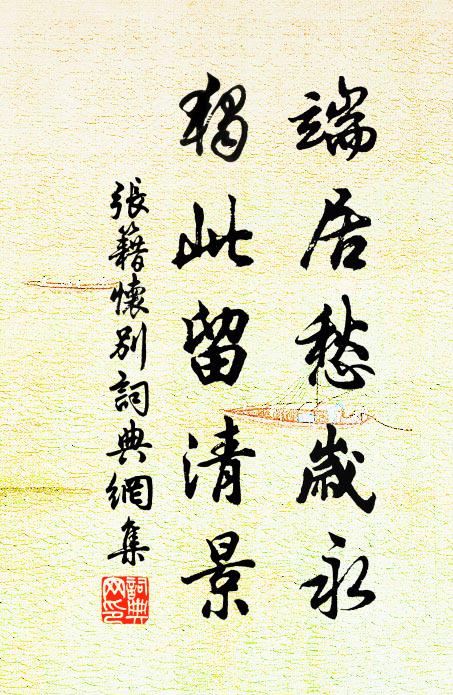 端居愁歲永
獨此留清景
張籍懷別詞典網集
詞典網印